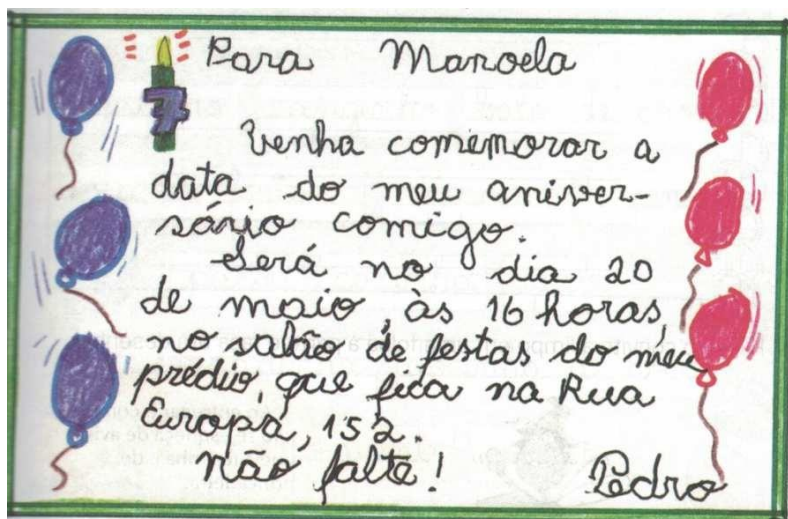 Para Manoela
7
Venha comemorar a
data do meu aniver-
sário comigo.
Será no dia 20
de maio, às 16 horas,
no salão de festas do meu
prédio, que fica na Rua
Europa, 152.
Não falte!
Pedro